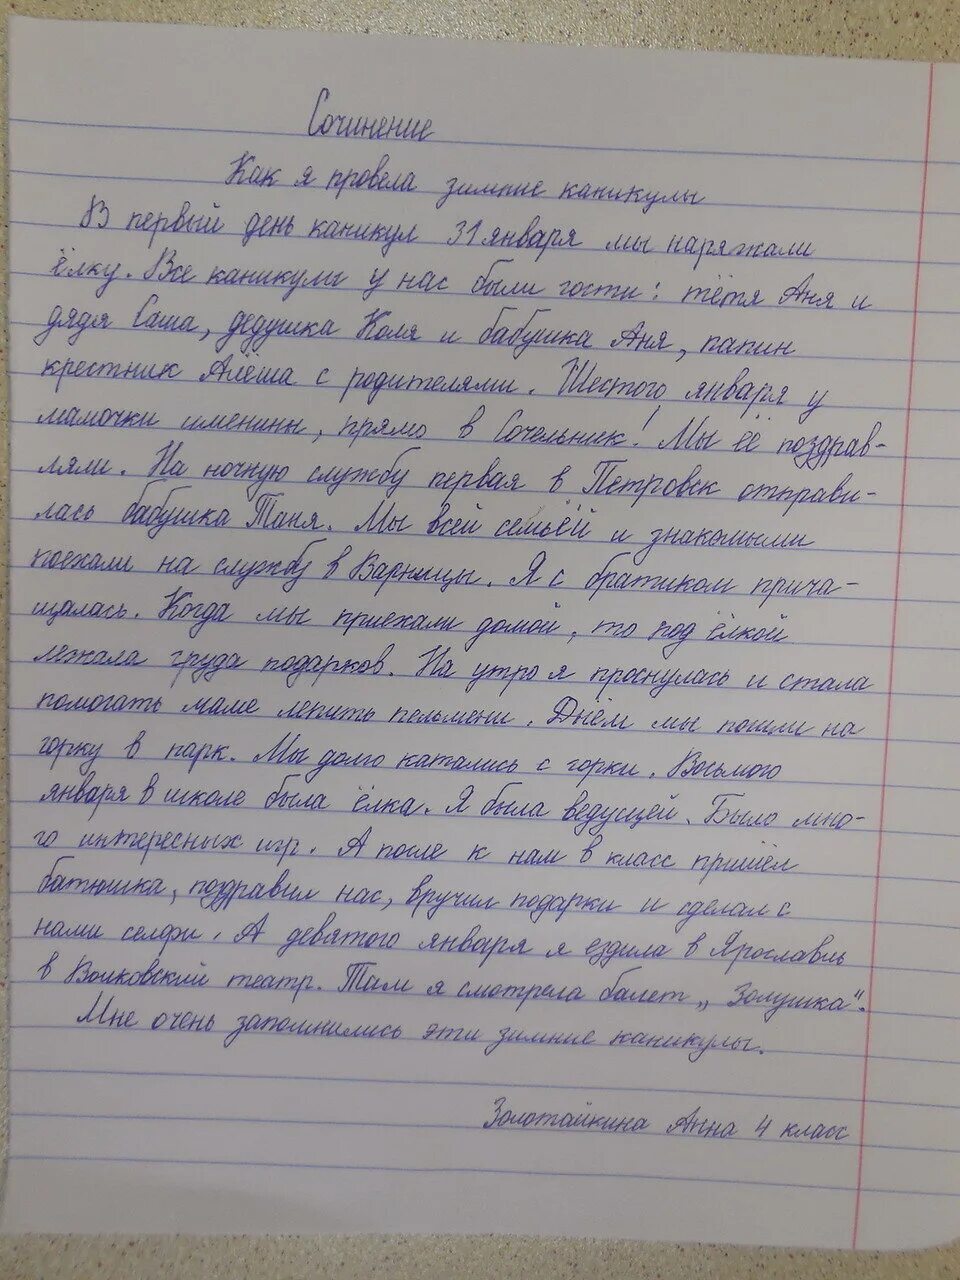 Сочинение
Как я провела зимние каникулы
В первый день каникул 31 января мы наряжали
ёлку. Все каникулы у нас были гости: тётя Аня и
дядя Саша, дедушка Коля и бабушка Аня, папин
крестник Алёша с родителями. Шестого января у
мамочки именины, прямо в Сочельник! Мы её поздрав-
ляли. На ночную службу первая в Петровск отправи-
лась бабушка Таня. Мы всей семьёй и знакомыми
поехали на службу в Варницы. Я с братиком прича-
щалась. Когда мы приехали домой, то под ёлкой
лежала груда подарков. На утро я проснулась и стала
помогать маме лепить пельмени. Днём мы пошли на
горку в парк. Мы долго катались с горки. Восьмого
января в школе была ёлка. Я была ведущей. Было мно-
го интересных игр. А после к нам в класс пришёл
батюшка, поздравил нас, вручил подарки и сделал с
нами селфи. А девятого января я ездила в Ярославль
в Волковский театр. Там я смотрела балет „Золушка".
Мне очень запомнились эти зимние каникулы.
Золотайкина Анна 4 класс